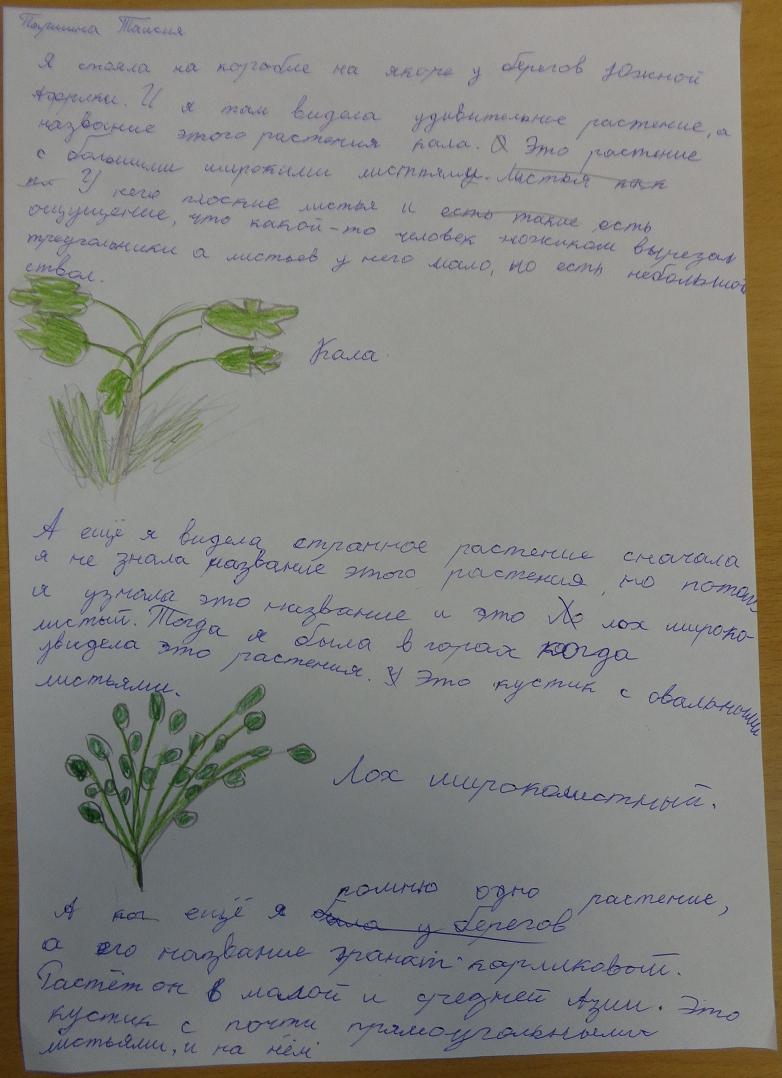 Паршина Таисия
Я стояла на корабле на якоре у берегов Южной
Африки. И я там видела удивительное растение, а
название этого растения кала. Это растение
с большими широкими листьями. Листья как
У него плоские листья и есть такие есть
ощущение, что какой-то человек ножиком вырезал
треугольники а листьев у него мало, но есть небольшой
ствол.
Кала
А ещё я видела странное растение сначала
я не знала название этого растения, но потом
я узнала это название и это Ло лох широко-
листый. Тогда я была в горах когда
увидела это растения. У Это кустик с овальными
листьями.
Лох широколистный.
помню одно растение,
А ещё я была у берегов
а его название гранат карликовый.
Растёт он в малой и средней Азии. Это
кустик с почти прямоугольными
листьями, и на нём